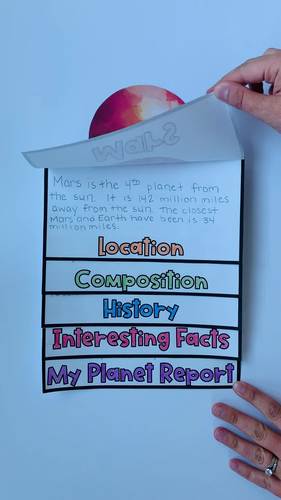 Mars
Mars is the 4th planet from
the sun. It is 142 million miles
away from the sun. The closest
Mars and Earth have been is 34
million miles.
Location
Composition
History
Interesting Facts
My Planet Report